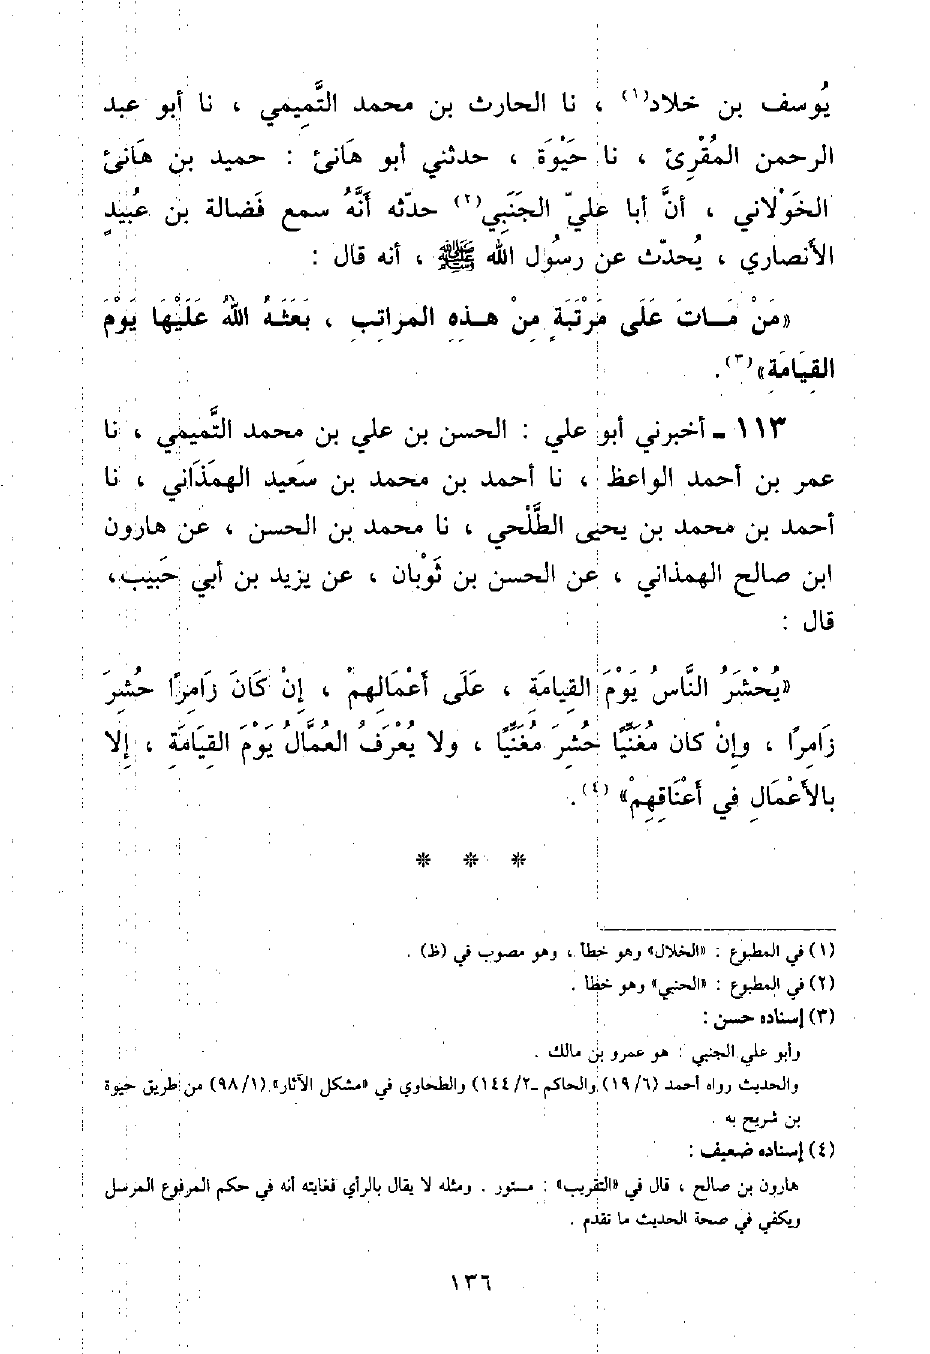 يُوسف بن خلاد(١) ، نا الحارث بن محمد التَّمِيمي ، نا أبو عبد
الرحمن المُقْرِئ ، نا حَيْوَة ، حدثني أبو هَانَئ : حميد بن هَانَئ
الخَوْلاني ، أنَّ أبا عليّ الجَنَبِي(٢) حدّثه أنَّهُ سمع فَضالة بن عُبيدٍ
الأنصاري ، يُحدّث عن رسُول الله ﷺ ، أنه قال :
«مَنْ مَـاتَ عَلَى مَرْتَبَةٍ مِنْ هـذِهِ المراتبِ ، بَعَثَـهُ اللهُ عَلَيْهَا يَوْمَ
القِيَامَةِ»(٣).
١١٣ ـ أخبرني أبو علي : الحسن بن علي بن محمد التَّمِيمي ، نا
عمر بن أحمد الواعظ ، نا أحمد بن محمد بن سَعيد الهمَذَاني ، نا
أحمد بن محمد بن يحيى الطَّلْحي ، نا محمد بن الحسن ، عن هارون
ابن صالح الهمذاني ، عن الحسن بن ثَوْبان ، عن يزيد بن أبي حَبيب،
قال :
«يُحْشَرُ النَّاسُ يَوْمَ القِيامَةِ ، عَلَى أَعْمَالِهِمْ ، إنْ كَانَ زَامِرًا حُشِرَ
زَامِرًا ، وإنْ كان مُغَنِّيًا حُشِرَ مُغَنِّيًا ، ولا يُعْرَفُ العُمَّالُ يَوْمَ القِيَامَةِ ، إلا
بالأَعْمَالِ في أَعْنَاقِهِمْ» (٤).
* * *
(١) في المطبوع : «الخلال» وهو خطأ ، وهو مصوب في (ظ) .
(٢) في المطبوع : «الحنبي» وهو خطأ .
(٣) إسناده حسن :
وأبو علي الجنبي : هو عمرو بن مالك .
والحديث رواه أحمد (١٩/٦) والحاكم ـ١٤٤/٢) والطحاوي في «مشكل الآثار» (٩٨/١) من طريق حيوة
بن شريح به .
(٤) إسناده ضعيف :
هارون بن صالح ، قال في «التقريب» : مستور . ومثله لا يقال بالرأي فغايته أنه في حكم المرفوع المرسل
ويكفي في صحة الحديث ما تقدم .
١٣٦